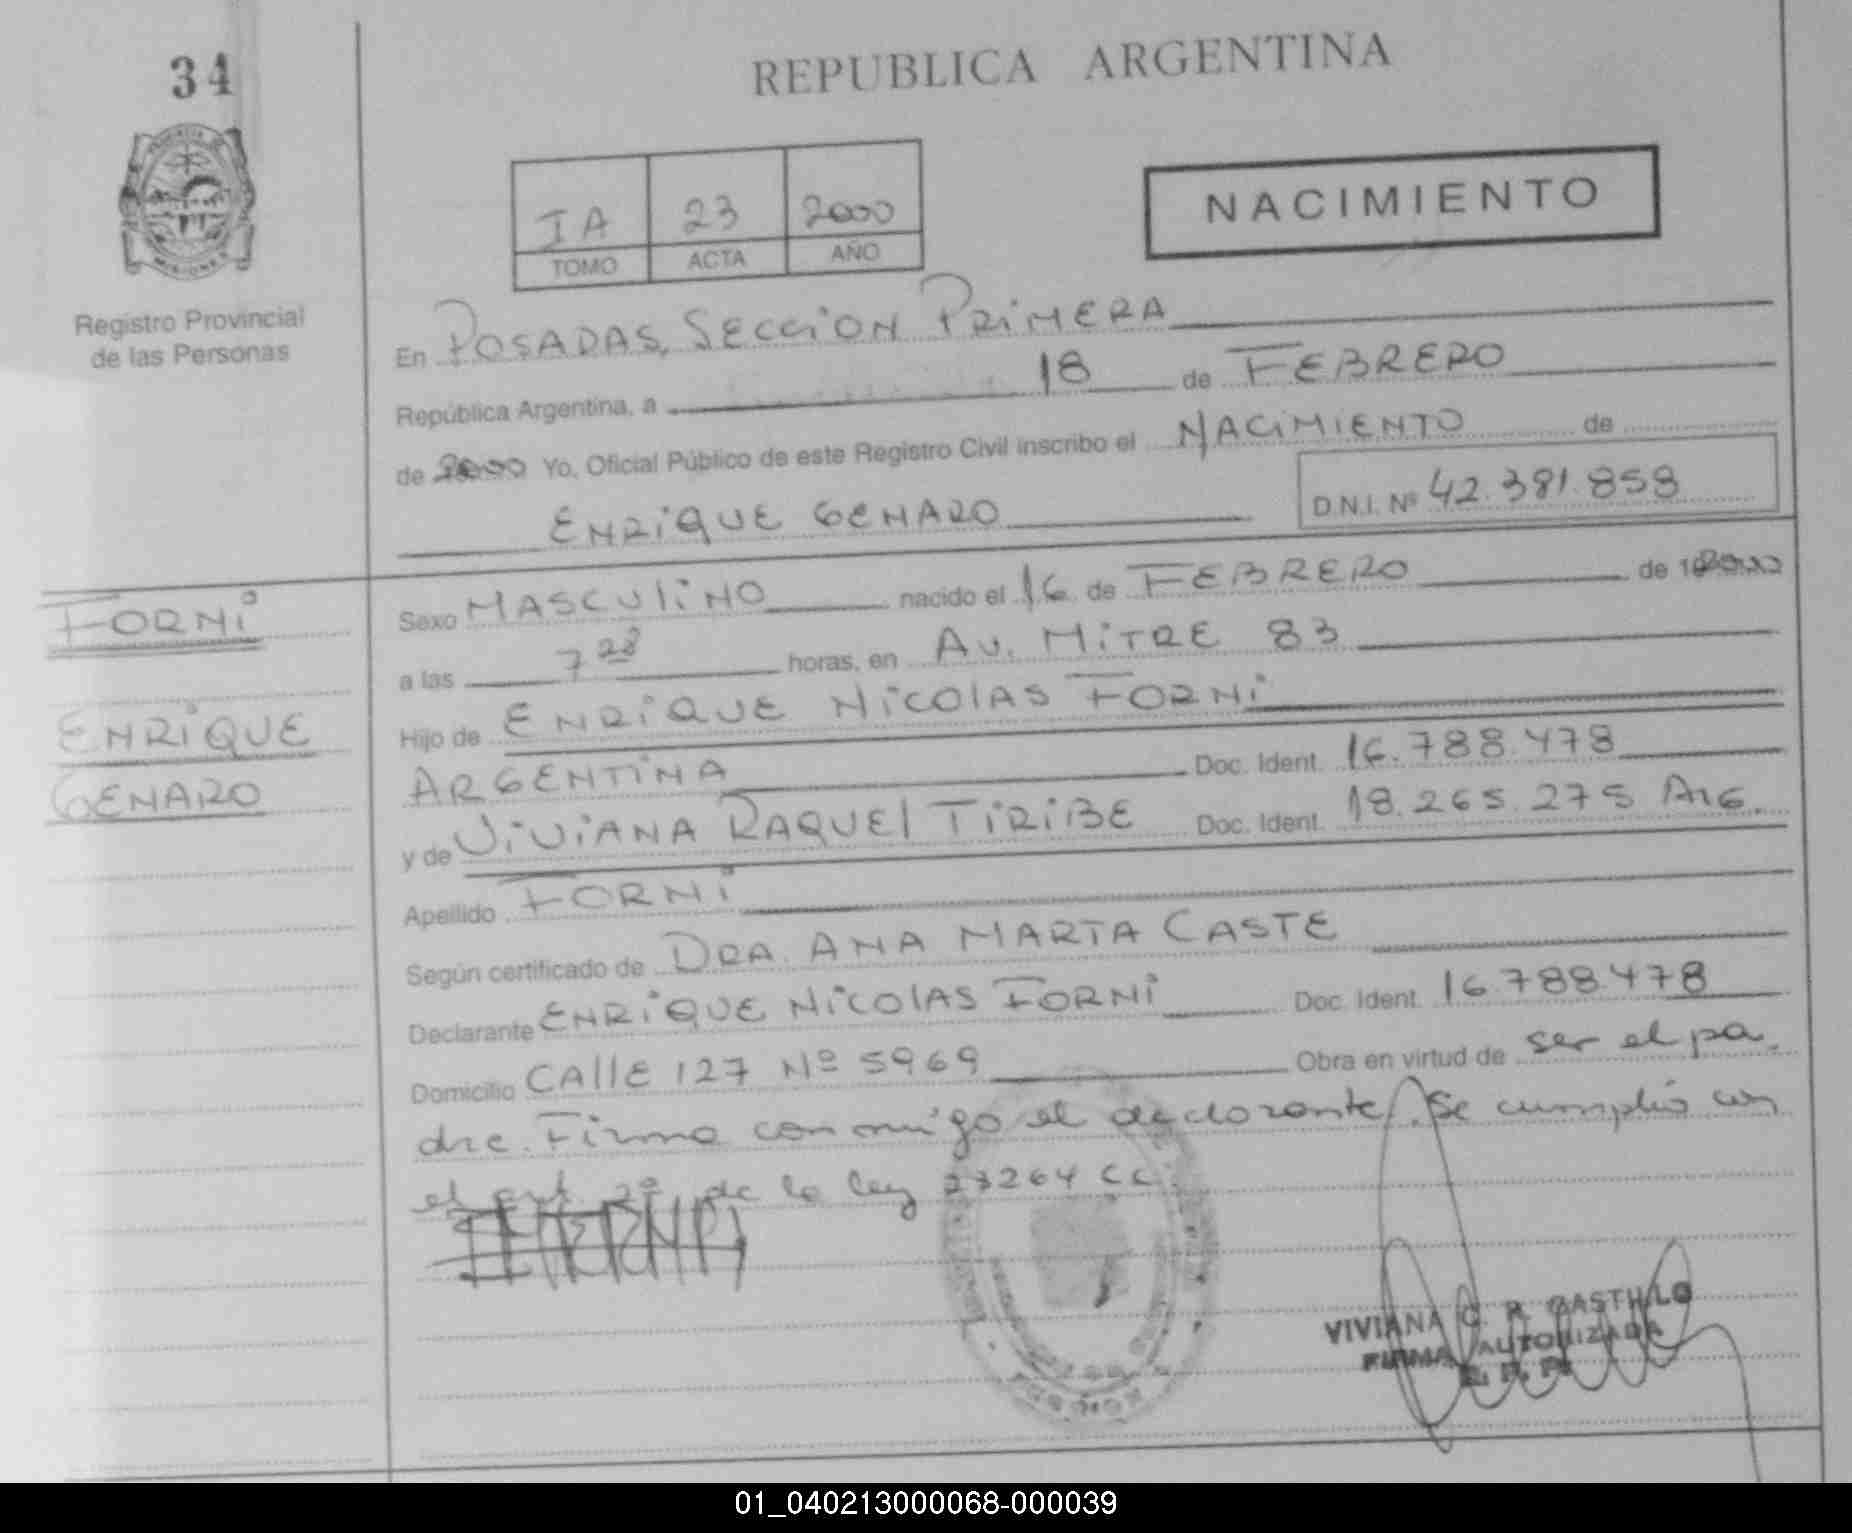 34
REPUBLICA ARGENTINA
NACIMIENTO
IA 23 2000
TOMO ACTA AÑO
MISIONES
Registro Provincial
de las Personas
En POSADAS, SECCION PRIMERA
República Argentina, a 18 de FEBRERO
de 2000 Yo, Oficial Público de este Registro Civil inscribo el NACIMIENTO de
ENRIQUE GENARO D.N.I. Nº 42.381.858
FORNI
ENRIQUE
GENARO
Sexo MASCULINO nacido el 16 de FEBRERO de 2000
a las 7 28 horas, en AV. MITRE 83
Hijo de ENRIQUE NICOLAS FORNI
ARGENTINA Doc. Ident. 16.788.478
y de VIVIANA RAQUEL TIRIBE Doc. Ident. 18.265.275 ARG.
Apellido FORNI
Según certificado de DRA. ANA MARTA CASTE
Declarante ENRIQUE NICOLAS FORNI Doc. Ident. 16.788.478
Domicilio CALLE 127 Nº 5969 Obra en virtud de ser el pa-
dre. Firma conmigo el declarante. Se cumplió con
el art. 2º de la ley 23264 CC.
VIVIANA C. R. CASTILLO
FIRMA AUTORIZADA
R. P. P.
01_040213000068-000039